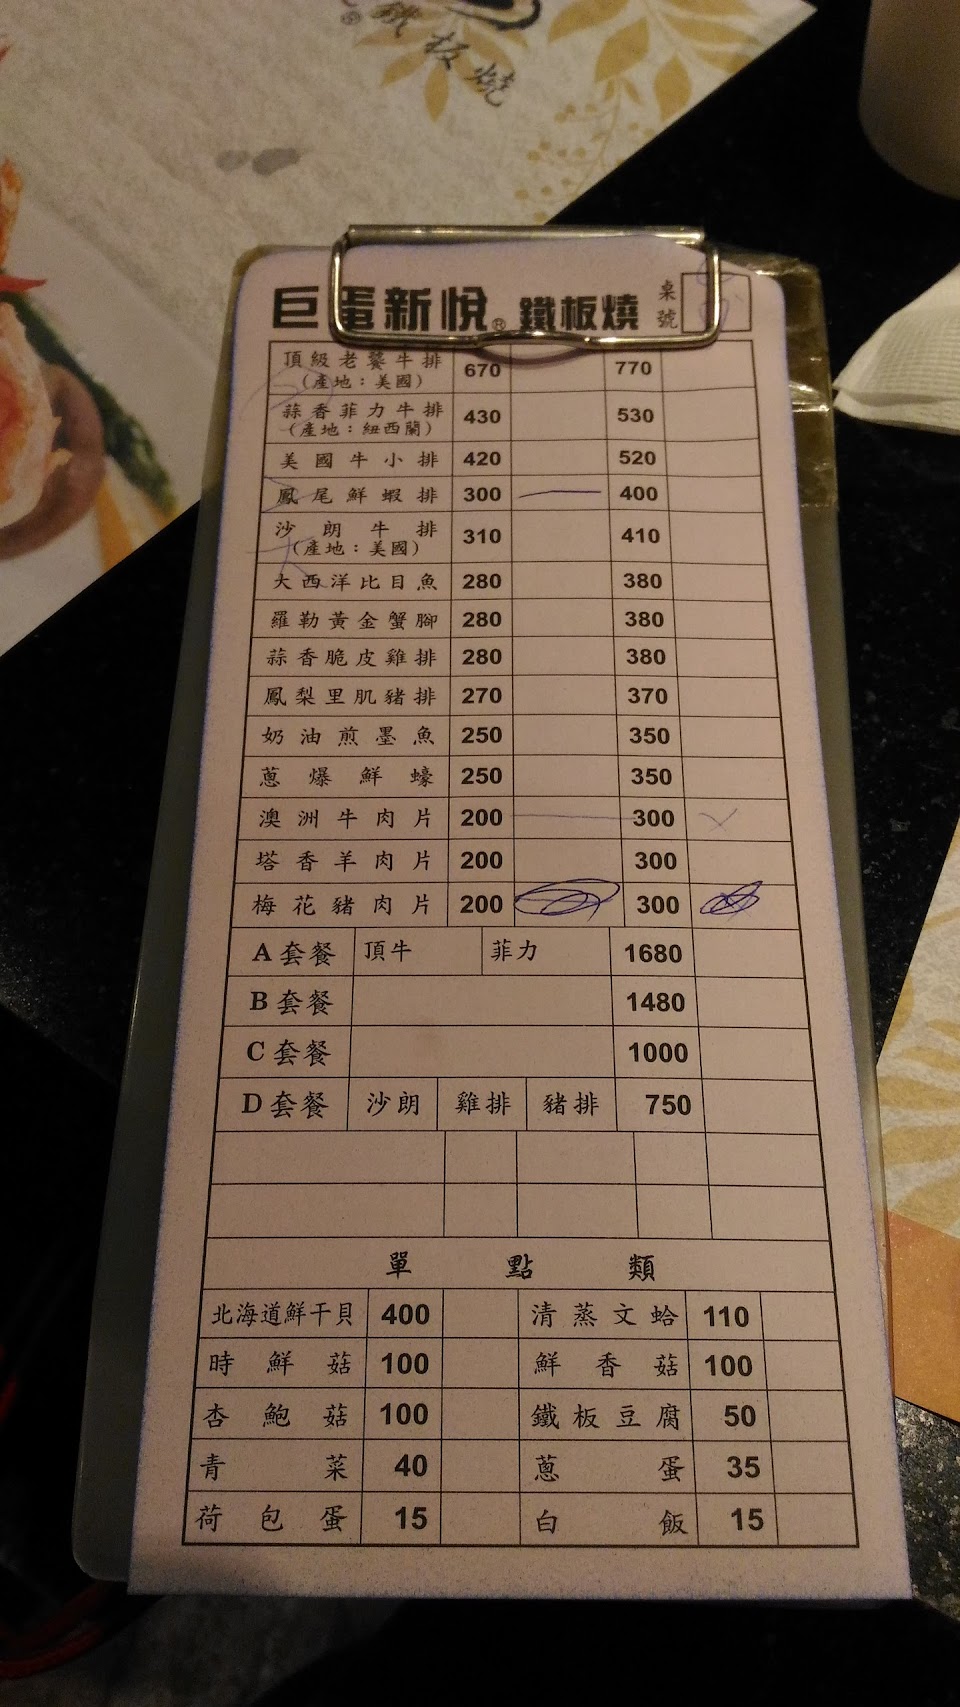 鐵板燒
巨蛋新悅® 鐵板燒 桌號
頂級老饕牛排 670 770
(產地：美國)
蒜香菲力牛排 430 530
(產地：紐西蘭)
美國牛小排 420 520
鳳尾鮮蝦排 300 400
沙朗牛排 310 410
(產地：美國)
大西洋比目魚 280 380
羅勒黃金蟹腳 280 380
蒜香脆皮雞排 280 380
鳳梨里肌豬排 270 370
奶油煎墨魚 250 350
蔥爆鮮蠔 250 350
澳洲牛肉片 200 300
塔香羊肉片 200 300
梅花豬肉片 200 300
A套餐 頂牛 菲力 1680
B套餐 1480
C套餐 1000
D套餐 沙朗 雞排 豬排 750
單點類
北海道鮮干貝 400 清蒸文蛤 110
時鮮菇 100 鮮香菇 100
杏鮑菇 100 鐵板豆腐 50
青菜 40 蔥蛋 35
荷包蛋 15 白飯 15